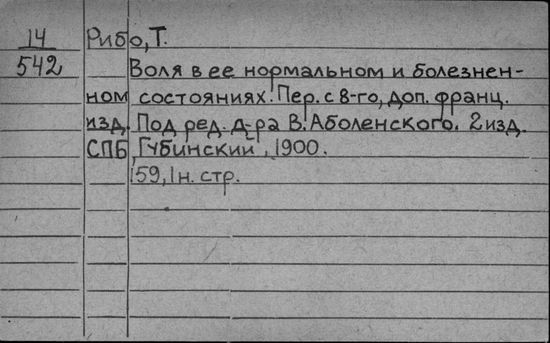 14 Рибо, Т.
542 Воля в ее нормальном и болезнен-
ном состояниях. Пер. с 8-го, доп. франц.
изд. Под ред. д-ра В. Аболенского. 2 изд.
СПБ, Губинский, 1900.
159, 1 н. стр.